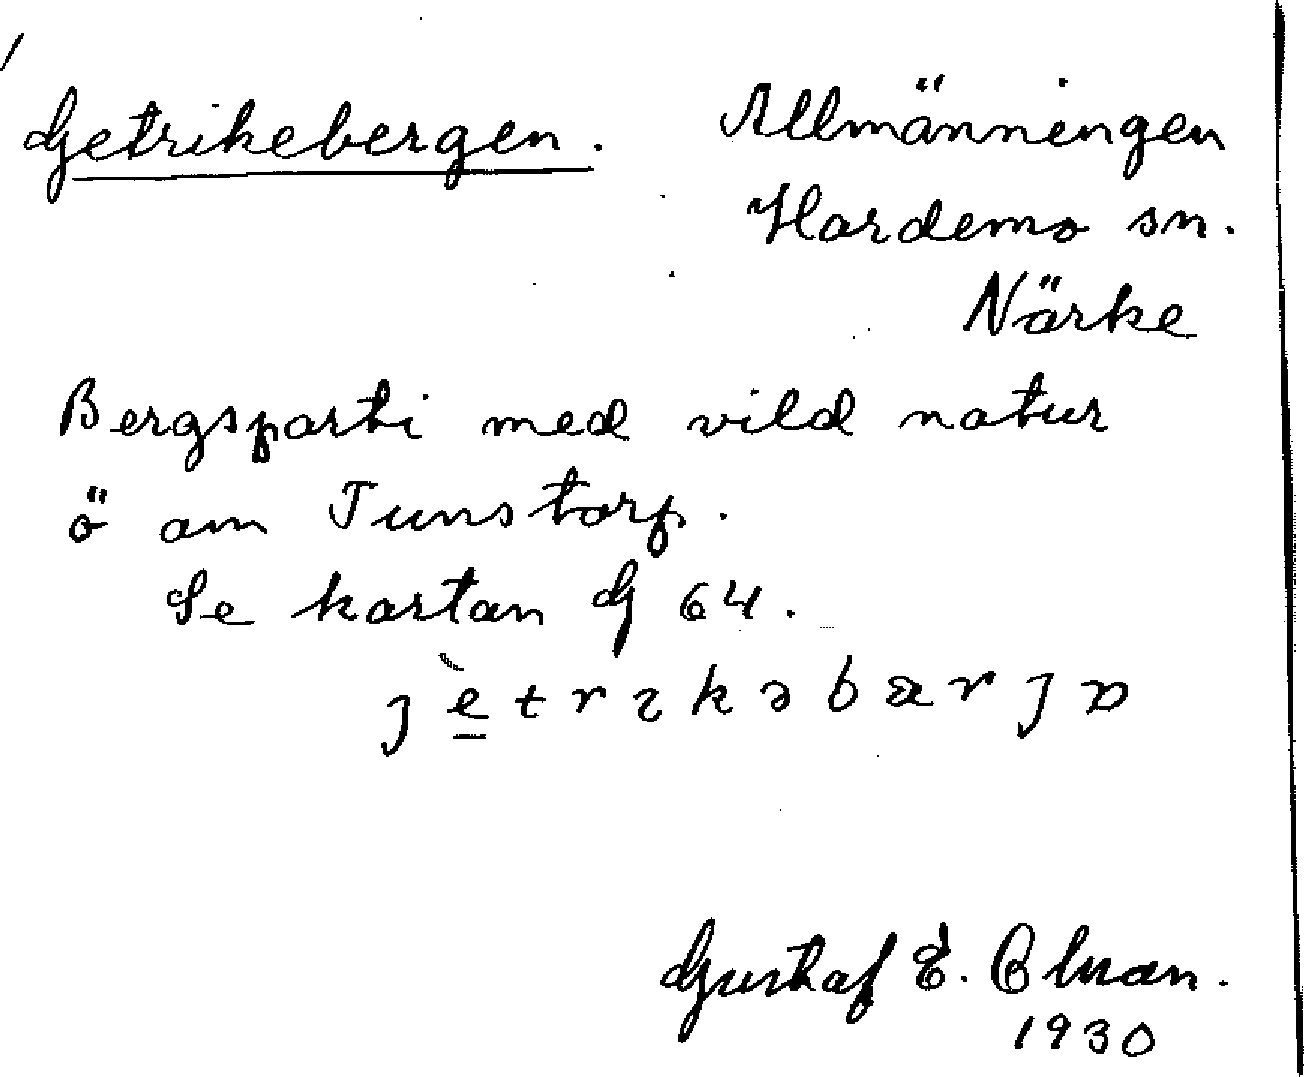 Getrikebergen. Allmänningen
Hardemo sn.
Närke
Bergsparti med vild natur
ö om Tunstorp.
Se kartan G 64.
Gustaf E.
1930